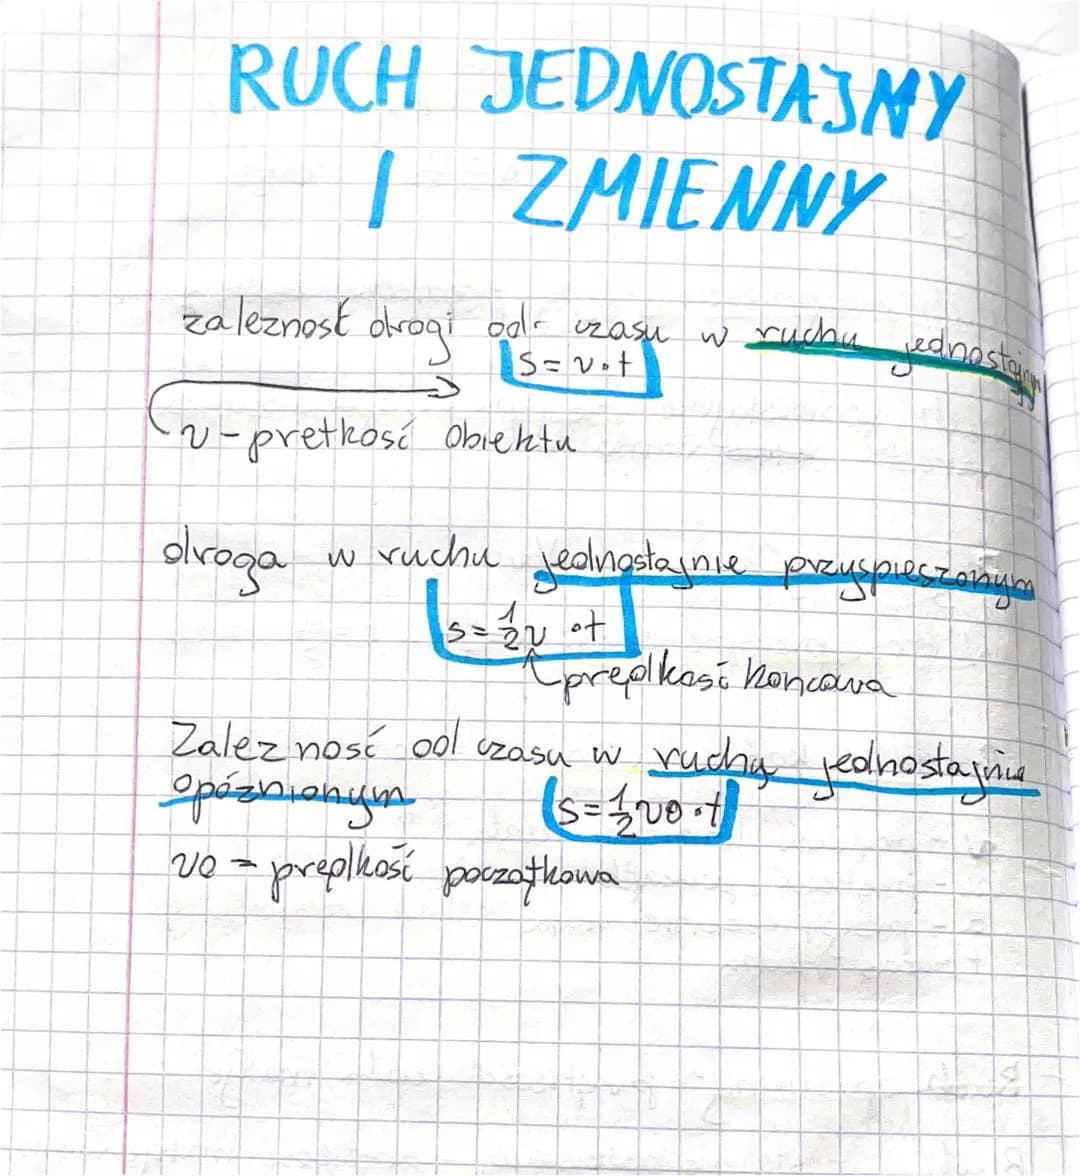 RUCH JEDNOSTAJNY
I ZMIENNY
zależność drogi od czasu w ruchu jednostajnym
s = v · t
v - pretkość obiektu
droga w ruchu jednostajnie przyspieszonym
s = 1/2 v · t
prędkość końcowa
Zależność od czasu w ruchy jednostajnie
opóźnionym
s = 1/2 v0 · t
v0 - prędkość początkowa